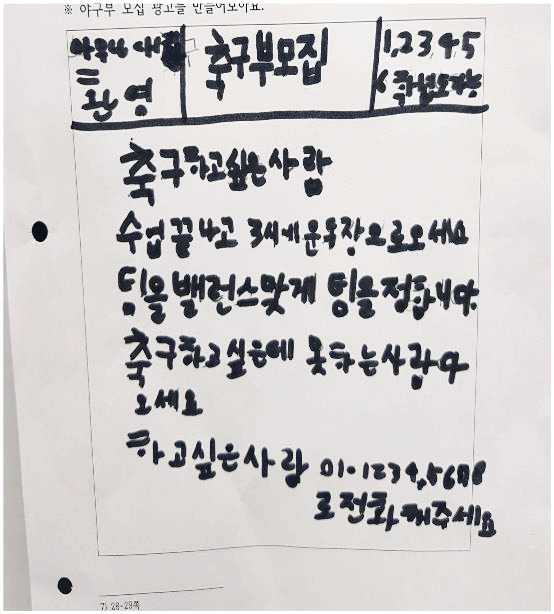 ※ 야구부 모집 광고를 만들어보아요.
아무나 대
환영
축구부모집
1,2,3,4,5
6학년도가능
축구하고싶은사람
수업 끝나고 3시에 운동장으로오세요
팀을 밸런스맞게 팀을정합니다.
축구하고싶은데 못하는사람다
오세요
하고싶은사람 01-1234,5678
로전화해주세요
7) 28-29쪽